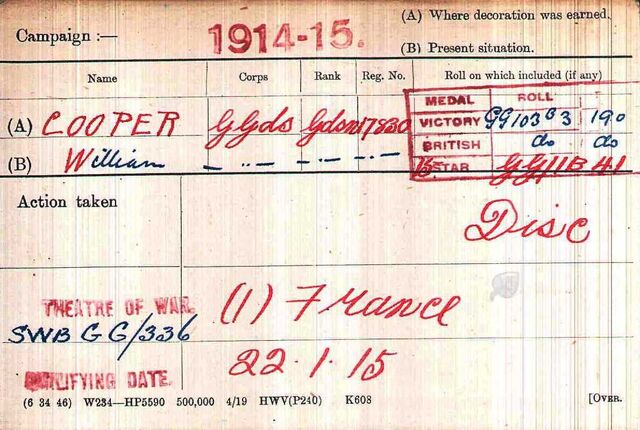 (A) Where decoration was earned.
Campaign :— 1914-15.
(B) Present situation.
Name Corps Rank Reg. No. Roll on which included (if any)
MEDAL ROLL
(A) COOPER G Gds Gdsn 17830 VICTORY GG103B3 190
(B) William — " — — " — — " — BRITISH do do
15 STAR GG/11B 41
Action taken
Disc
THEATRE OF WAR. (1) France
SWB GG/336
QUALIFYING DATE. 22.1.15
(6 34 46) W234—HP5590 500,000 4/19 HWV(P240) K608 [OVER.